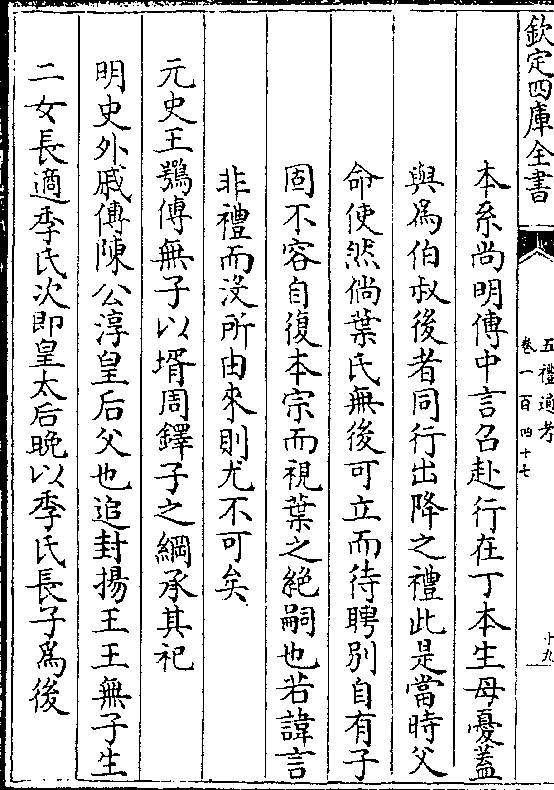 欽定四庫全書
五禮通考
卷一百四十七
十九
本系尚明傳中言召赴行在丁本生母憂蓋
與爲伯叔後者同行出降之禮此是當時父
命使然倘葉氏無後可立而待聘別自有子
固不容自復本宗而視葉之絶嗣也若諱言
非禮而沒所由來則尤不可矣
元史王鶚傳無子以壻周鐸子之綱承其祀
明史外戚傳陳公淳皇后父也追封揚王王無子生
二女長適季氏次即皇太后晩以季氏長子爲後